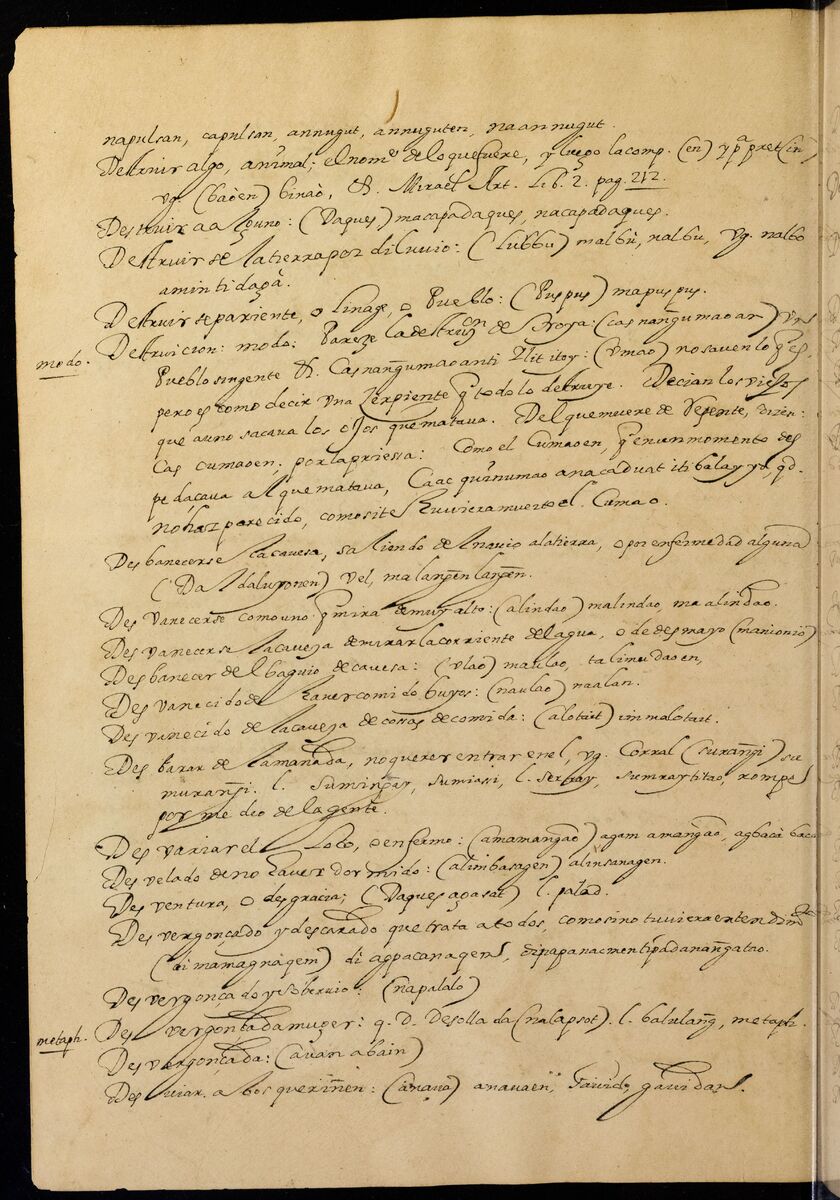 napulsan, capulsan, annugut, annuguten, naannugut.
Destruir algo, animal; el nome de lo que fuere, y luego la comp. (en) y pa pret (in)
vg. (baòen) binaò, &. Mirael Art. Lib. 2. pag. 212.
Destruir a alguno: (Daques) macapadaques, nacapadaques.
Destruirse la tierra por diluvio: (lubbu) malbù, nalbu, vg. nalbo
amin ti dagà.
Destruirse pariente, o linage, o Pueblo: (Puspus) mapuspus.
modo.
Destruicion: modo: Pareze la destruicon de Troya: (cas nangumaoar) vn
Pueblo sin gente &. Cas nangumaoanti (vmao) no saven lo q es,
pero es como decir vna serpiente q todo lo destruye. Decian los viejos
que a uno sacava los ojos que matava. Del que muere de repente, dizen:
Cas cumaoen, por la priessa: Como el Cumaoen q en un momento des
pedaçava al que matava, Caac quinumao anacaduat iti balayyo, qd.
no haz parecido, como si te huviera muerto el Cumao.
Desbanecerse la cavesa, saliendo de navio a la tierra, o por enfermedad alguna
vel, malangenlangen.
Desvanecerse como uno q mira de muy alto: (alindao) malindao, maalindao.
Desvanecerse la caveza de mirar la corriente del agua, o de desmayo
Desbanecer del baguio de cavesa: (vlao) maulao, talimudaoen,
Desvanecido de haver comido buyos: (naulao) naalan.
Desvanecido de la caveza de cossas de comida: (alotait) immalotait.
Desbarar de la manada, no querer entrar en el, vg. Corral (surangi) su
murangi. l. sumingpay, sumiasi, l. serray, sumraytitao, rompe
por medio de la gente.
Desvariar el Loco, o enfermo: (amamangao) agam amangao, agbacà baca
Desvelado de no haver dormido: (alimbasagen) alinsanagen.
Desventura, o desgracia; (Daques agasat) l. palad.
Desvergonçado y descarado que trata a todos, como si no tuviera entendimto
(aimamagnagem) di agpacanagem,
Desvergonçado y sobervio: (napalalo)
metaph.
Desvergonçada muger: q. d. Desollada (nalapsot). l. balulang, metaph.
Desvergonçada: (avan abain)
Desviar a los que riñen: (anava) anavaen, Gavid, gavidan.